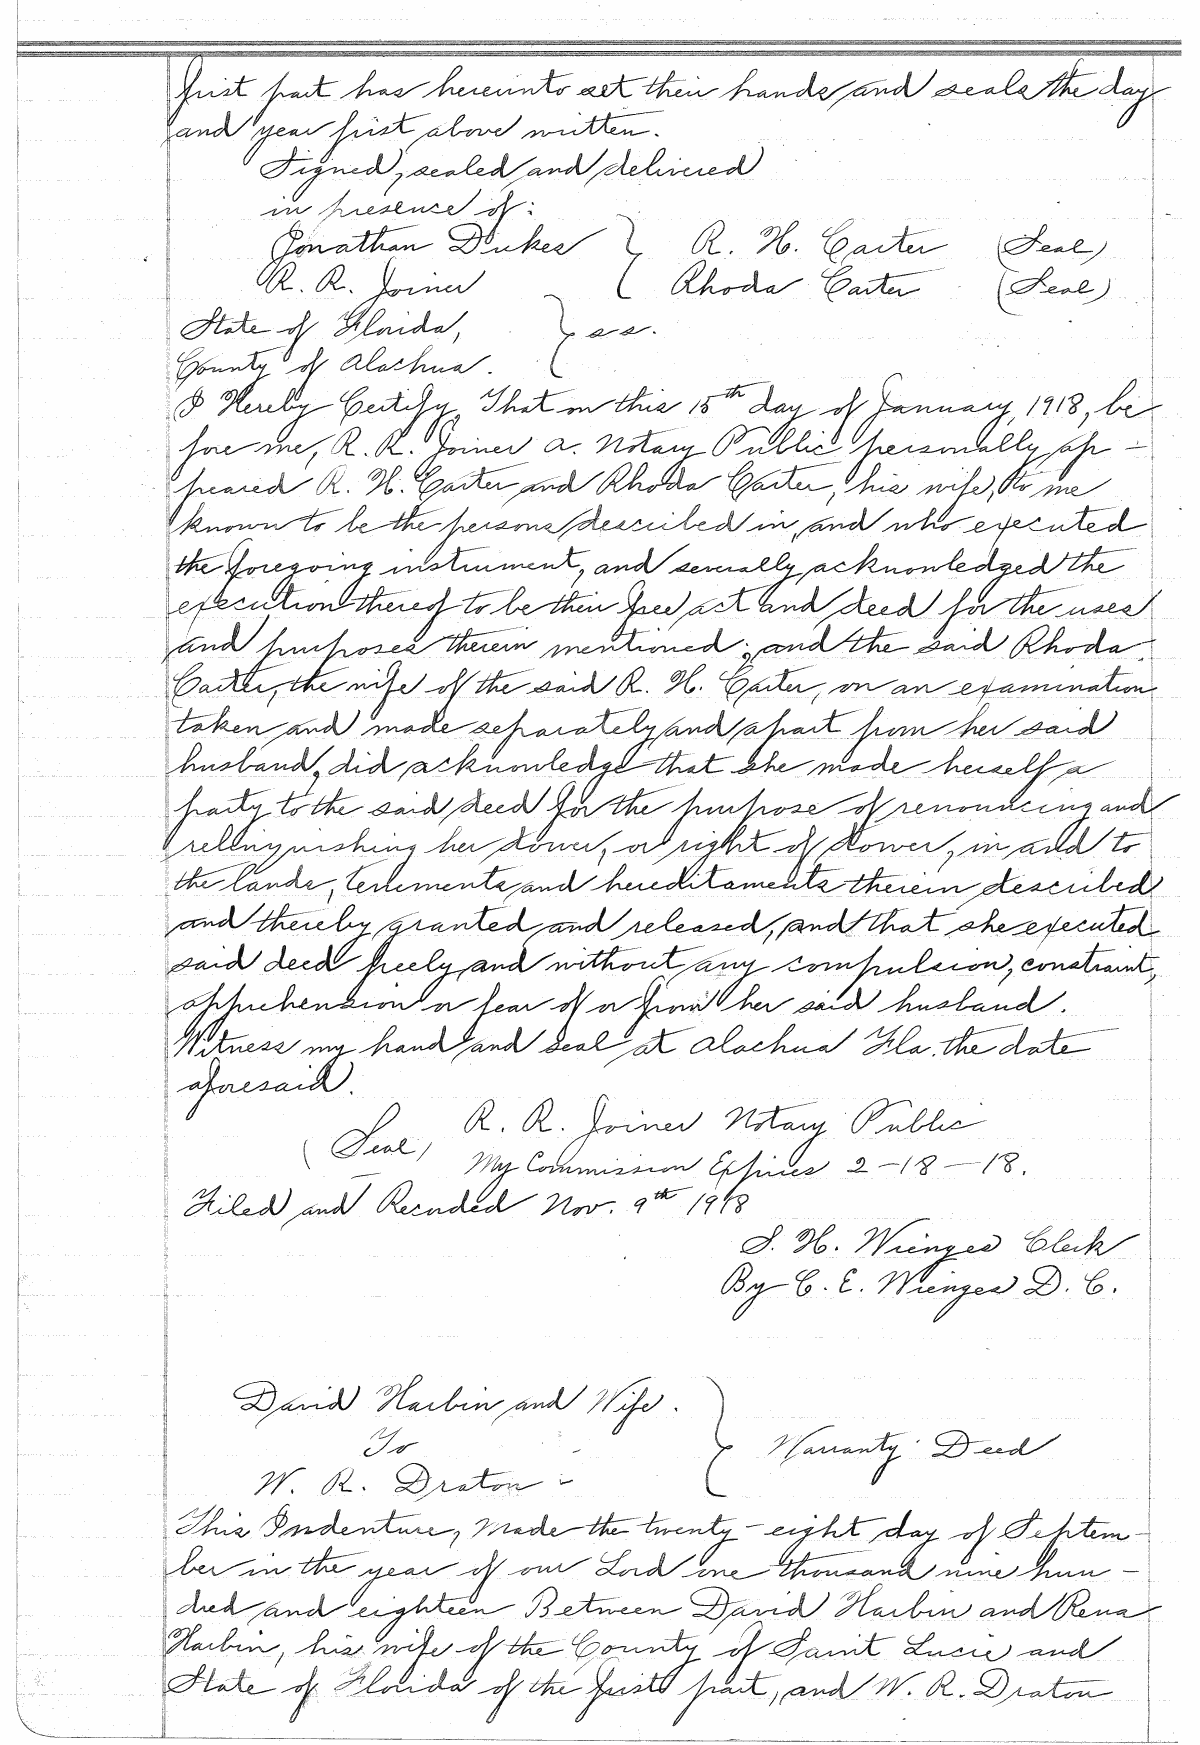 first part has hereunto set their hands and seals the day
and year first above written.
Signed, sealed and delivered
in presence of:
Jonathan Dukes R. H. Carter (Seal)
R. R. Joiner Rhoda Carter (Seal)
State of Florida, ss.
County of Alachua.
I Hereby Certify, That on this 15th day of January, 1918, be
fore me, R. R. Joiner a. Notary Public personally ap-
peared R. H. Carter and Rhoda Carter, his wife, to me
known to be the persons described in, and who executed
the foregoing instrument, and severally acknowledged the
execution thereof to be their free act and deed for the uses
and purposes therein mentioned; and the said Rhoda
Carter, the wife of the said R. H. Carter, on an examination
taken and made separately and apart from her said
husband, did acknowledge that she made herself a
party to the said deed for the purpose of renouncing and
relinquishing her dower, or right of dower, in and to
the lands, tenements and hereditaments therein described
and thereby granted and released, and that she executed
said deed freely and without any compulsion, constraint,
apprehension or fear of or from her said husband.
Witness my hand and seal at Alachua Fla. the date
aforesaid.
(Seal) R. R. Joiner Notary Public
My Commission Expires 2-18-18.
Filed and Recorded Nov. 9th 1918
S. H. Wienges Clerk
By C. E. Wienges D. C.
David Harbin and Wife.
To Warranty Deed
W. R. Draton -
This Indenture, Made the twenty-eight day of Septem-
ber in the year of our Lord one thousand nine hun-
dred and eighteen Between David Harbin and Rena
Harbin, his wife of the County of Saint Lucie and
State of Florida of the first part, and W. R. Draton